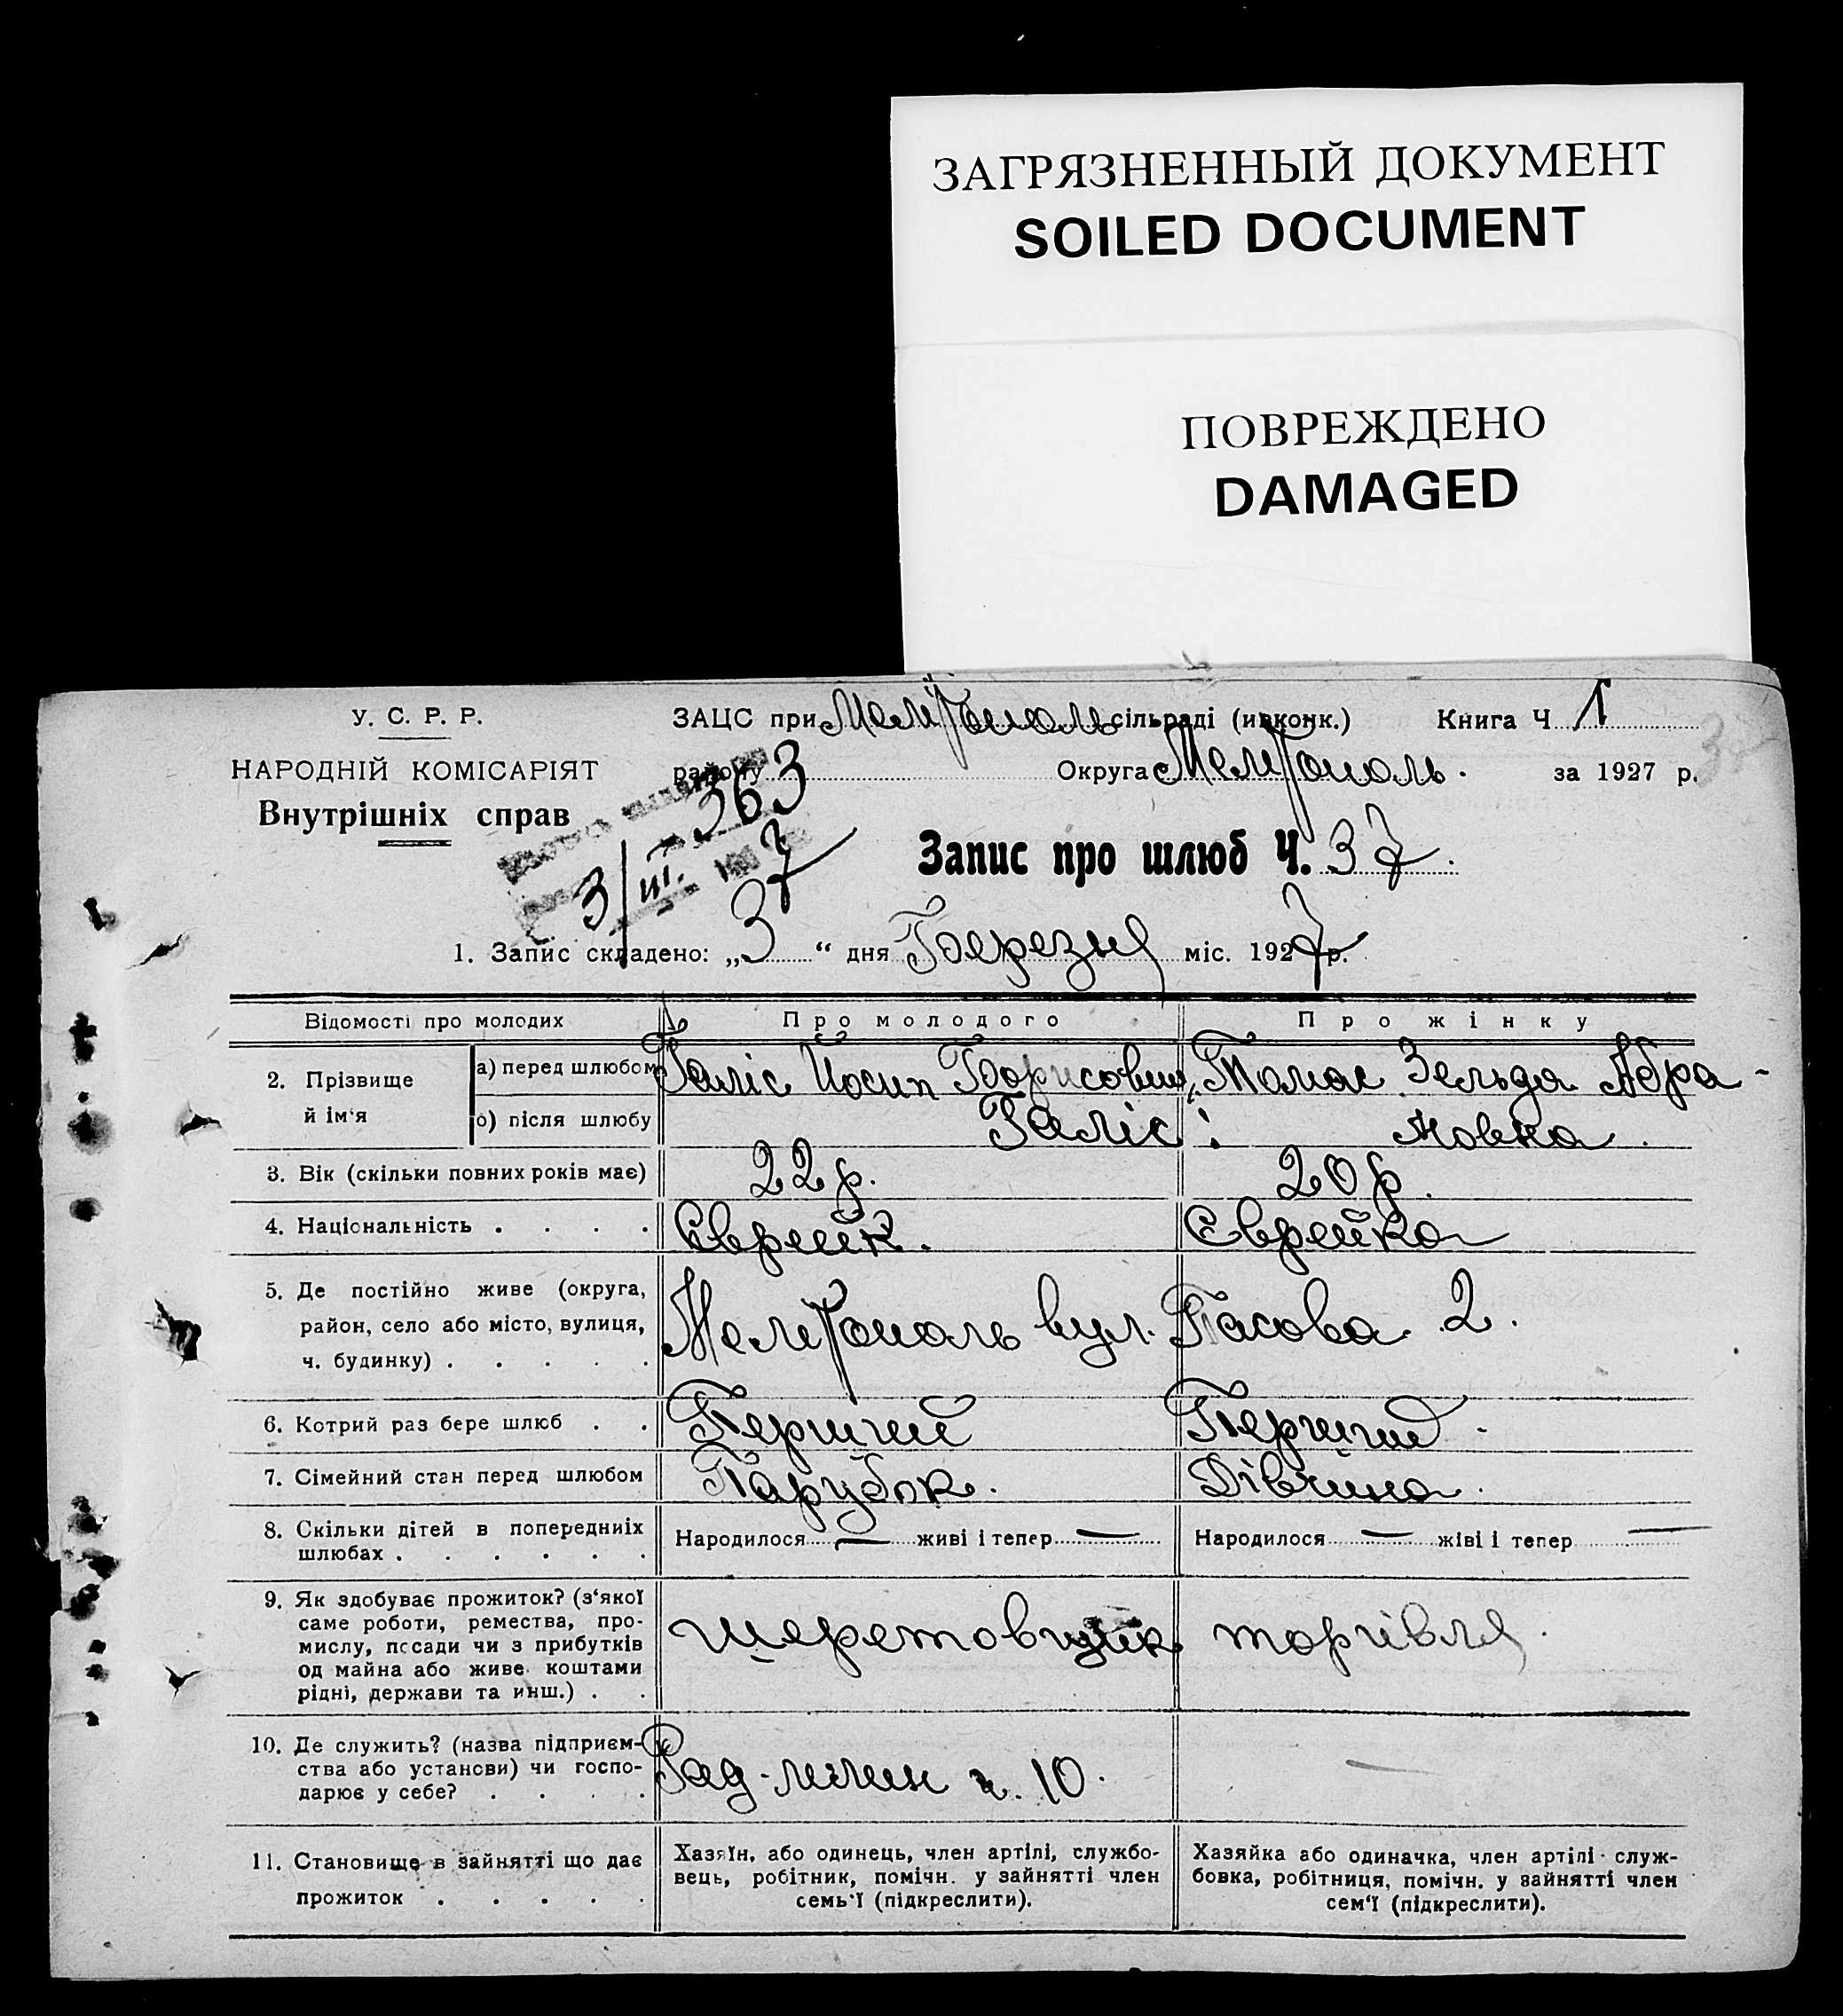 ЗАГРЯЗНЕННЫЙ ДОКУМЕНТ
SOILED DOCUMENT
ПОВРЕЖДЕНО
DAMAGED
У. С. Р. Р.
НАРОДНІЙ КОМІСАРІЯТ
Внутрішніх справ
ЗАЦС при Мелітополь сільраді (ивконк.) Книга Ч 1
району Округа Мелітополь. за 1927 р.
363
3/III. 7
Запис про шлюб Ч. 37.
1. Запис складено: „3“ дня Березня міс. 1927 р.
Відомості про молодих Про молодого Про жінку
2. Прізвище й ім'я
а) перед шлюбом Галіс Йосип Борисович Томак Зельда Абра-
б) після шлюбу Галіс: мовна.
3. Вік (скільки повних років має) 22 р. 20 р.
4. Національність . . . . Єврейк. Єврейка
5. Де постійно живе (округа,
район, село або місто, вулиця,
ч. будинку) . . . . . Мелітополь вул. 2.
6. Котрий раз бере шлюб . . Перший Перший.
7. Сімейний стан перед шлюбом Парубок. Дівчина.
8. Скільки дітей в попередниіх
шлюбах . . . . . . Народилося — живі і тепер — Народилося — жіві і тепер —
9. Як здобуває прожиток? (з'якої
саме роботи, ремества, про-
мислу, посади чи з прибутків
од майна або живе коштами
рідні, держави та инш.) . .
шеретовщик торгівля.
10. Де служить? (назва підприєм-
ства або установи) чи госпо-
дарює у себе? . . . .
Рад-млин ч. 10. —
11. Становище в зайнятті що дає
прожиток . . . . .
Хазяїн, або одинець, член артілі, службо-
вець, робітник, помічн. у зайнятті член
семь'ї (підкреслити).
Хазяйка або одиначка, член артілі служ-
бовка, робітниця, помічн. у зайнятті член
сем'ї (підкреслити).